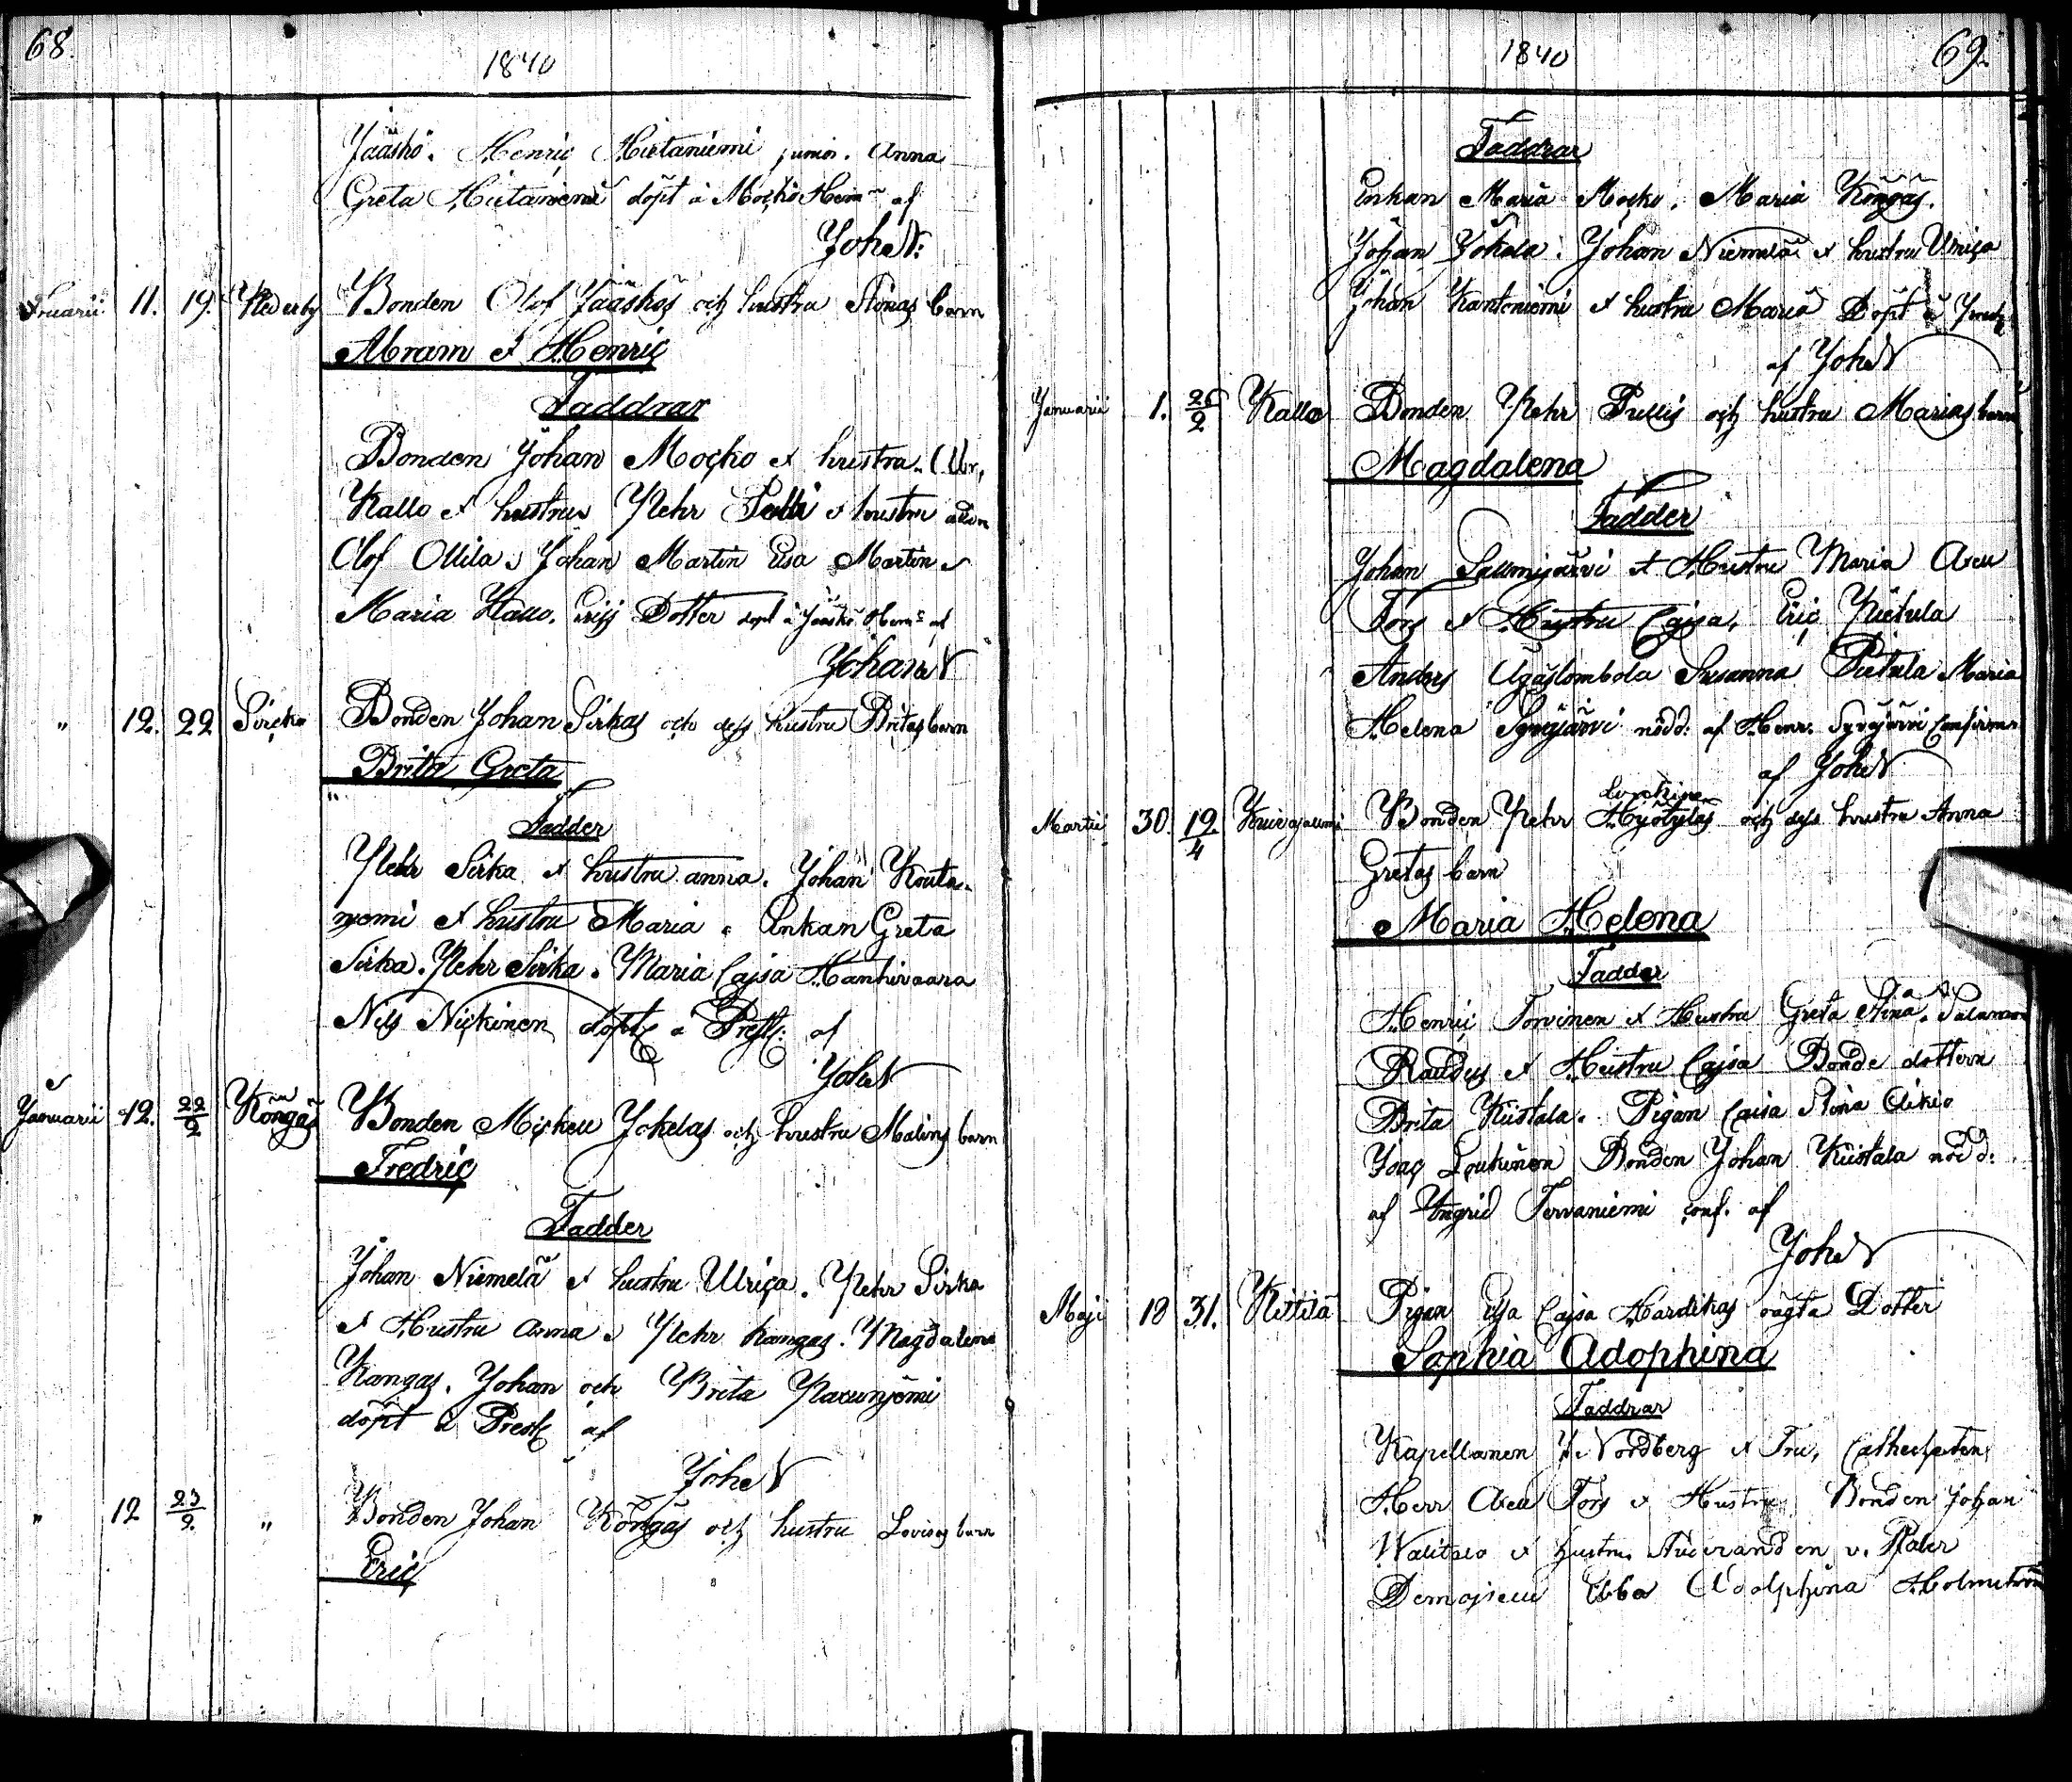 68.
1840
Jääskö. Henric Hietaniemi junior. Anna
Greta Hietaniemi döpt à Mocko Hem af
Joh N:
11. 19. Nederby Bonden Olof Jääskös och hustru Stinas barn
Abram et Henric
Faddrar
Bonden Johan Mocko et hustru.
Kallo et hustru Pehr Pulli et hustru
Olof Ollila, Johan Martin Elsa Martin
Maria Kallo. Dotter döpt à Jääskö Hem: af
Johan N
" 12. 22 Sircka Bonden Johan Sirkas och dess hustru Britas barn
Brita Greta
Fadder
Pehr Sirka et hustru anna. Johan Kouta-
niemi et hustru Maria. Enkan Greta
Sirka. Pehr Sirka. Maria Cajsa Hanhivaara
Nils Nickinen döpt à Prest: af
Joh N
Januarii 12. 22/2 Köngäs Bonden Mickell Jokelas och hustru Malins barn
Fredric
Fadder
Johan Niemelä et hustru Ulrica. Pehr Sirka
et Hustru Anna, Pehr Kangas. Magdalena
Kangas. Johan och Brita
döpt à Prest af
Joh N
" 12 23/2. " Bonden Johan Köngäs och hustru Lovisas barn
Eric
1840
69.
Faddrar
Enkan Maria Mocko. Maria Köngäs.
Johan Jokela. Johan Niemelä et hustru Ulrica
Johan Kantoniemi et hustru Maria Döpt à
af Joh N
Januarii 1. 26/2 Kallo Bonden Pehr Pullis och hustru Marias barn
Magdalena
Fadder
Johan Saumijärvi et Hustru Maria Axell
Fors et Hustru Cajsa, Eric Pietula
Anders Äkäslombola Susanna Pietula Maria
Helena Syväjärvi nödd: af Henr. Syväjärvi Confirm
af Joh N
Martii 30. 19./4 Bonden Pehr Hyötyläs och dess hustru Anna
Gretas barn
Maria Helena
Fadder
Henric Torvinen et Hustru Greta Stina. Salamon
Raudus et Hustru Cajsa Bonde dottern
Brita Kiistala. Pigan Caisa Stina Aikio
Isac Loukinen Bonden Johan Kiistala nöd d:
af Ingrid Tervaniemi conf. af
Joh N
Maji 18 31. Kittilä Pigan Elsa Cajsa Hardikas oägta Dotter
Sophia Adophina
Faddrar
Kapellanen J. Nordberg et Fru, Catheketen
Herr Axell Fors et Hustru. Bonden Johan
Walitalo et hustru. Studeranden v. Plater
Demoisell Ebba Adolphina Holmström